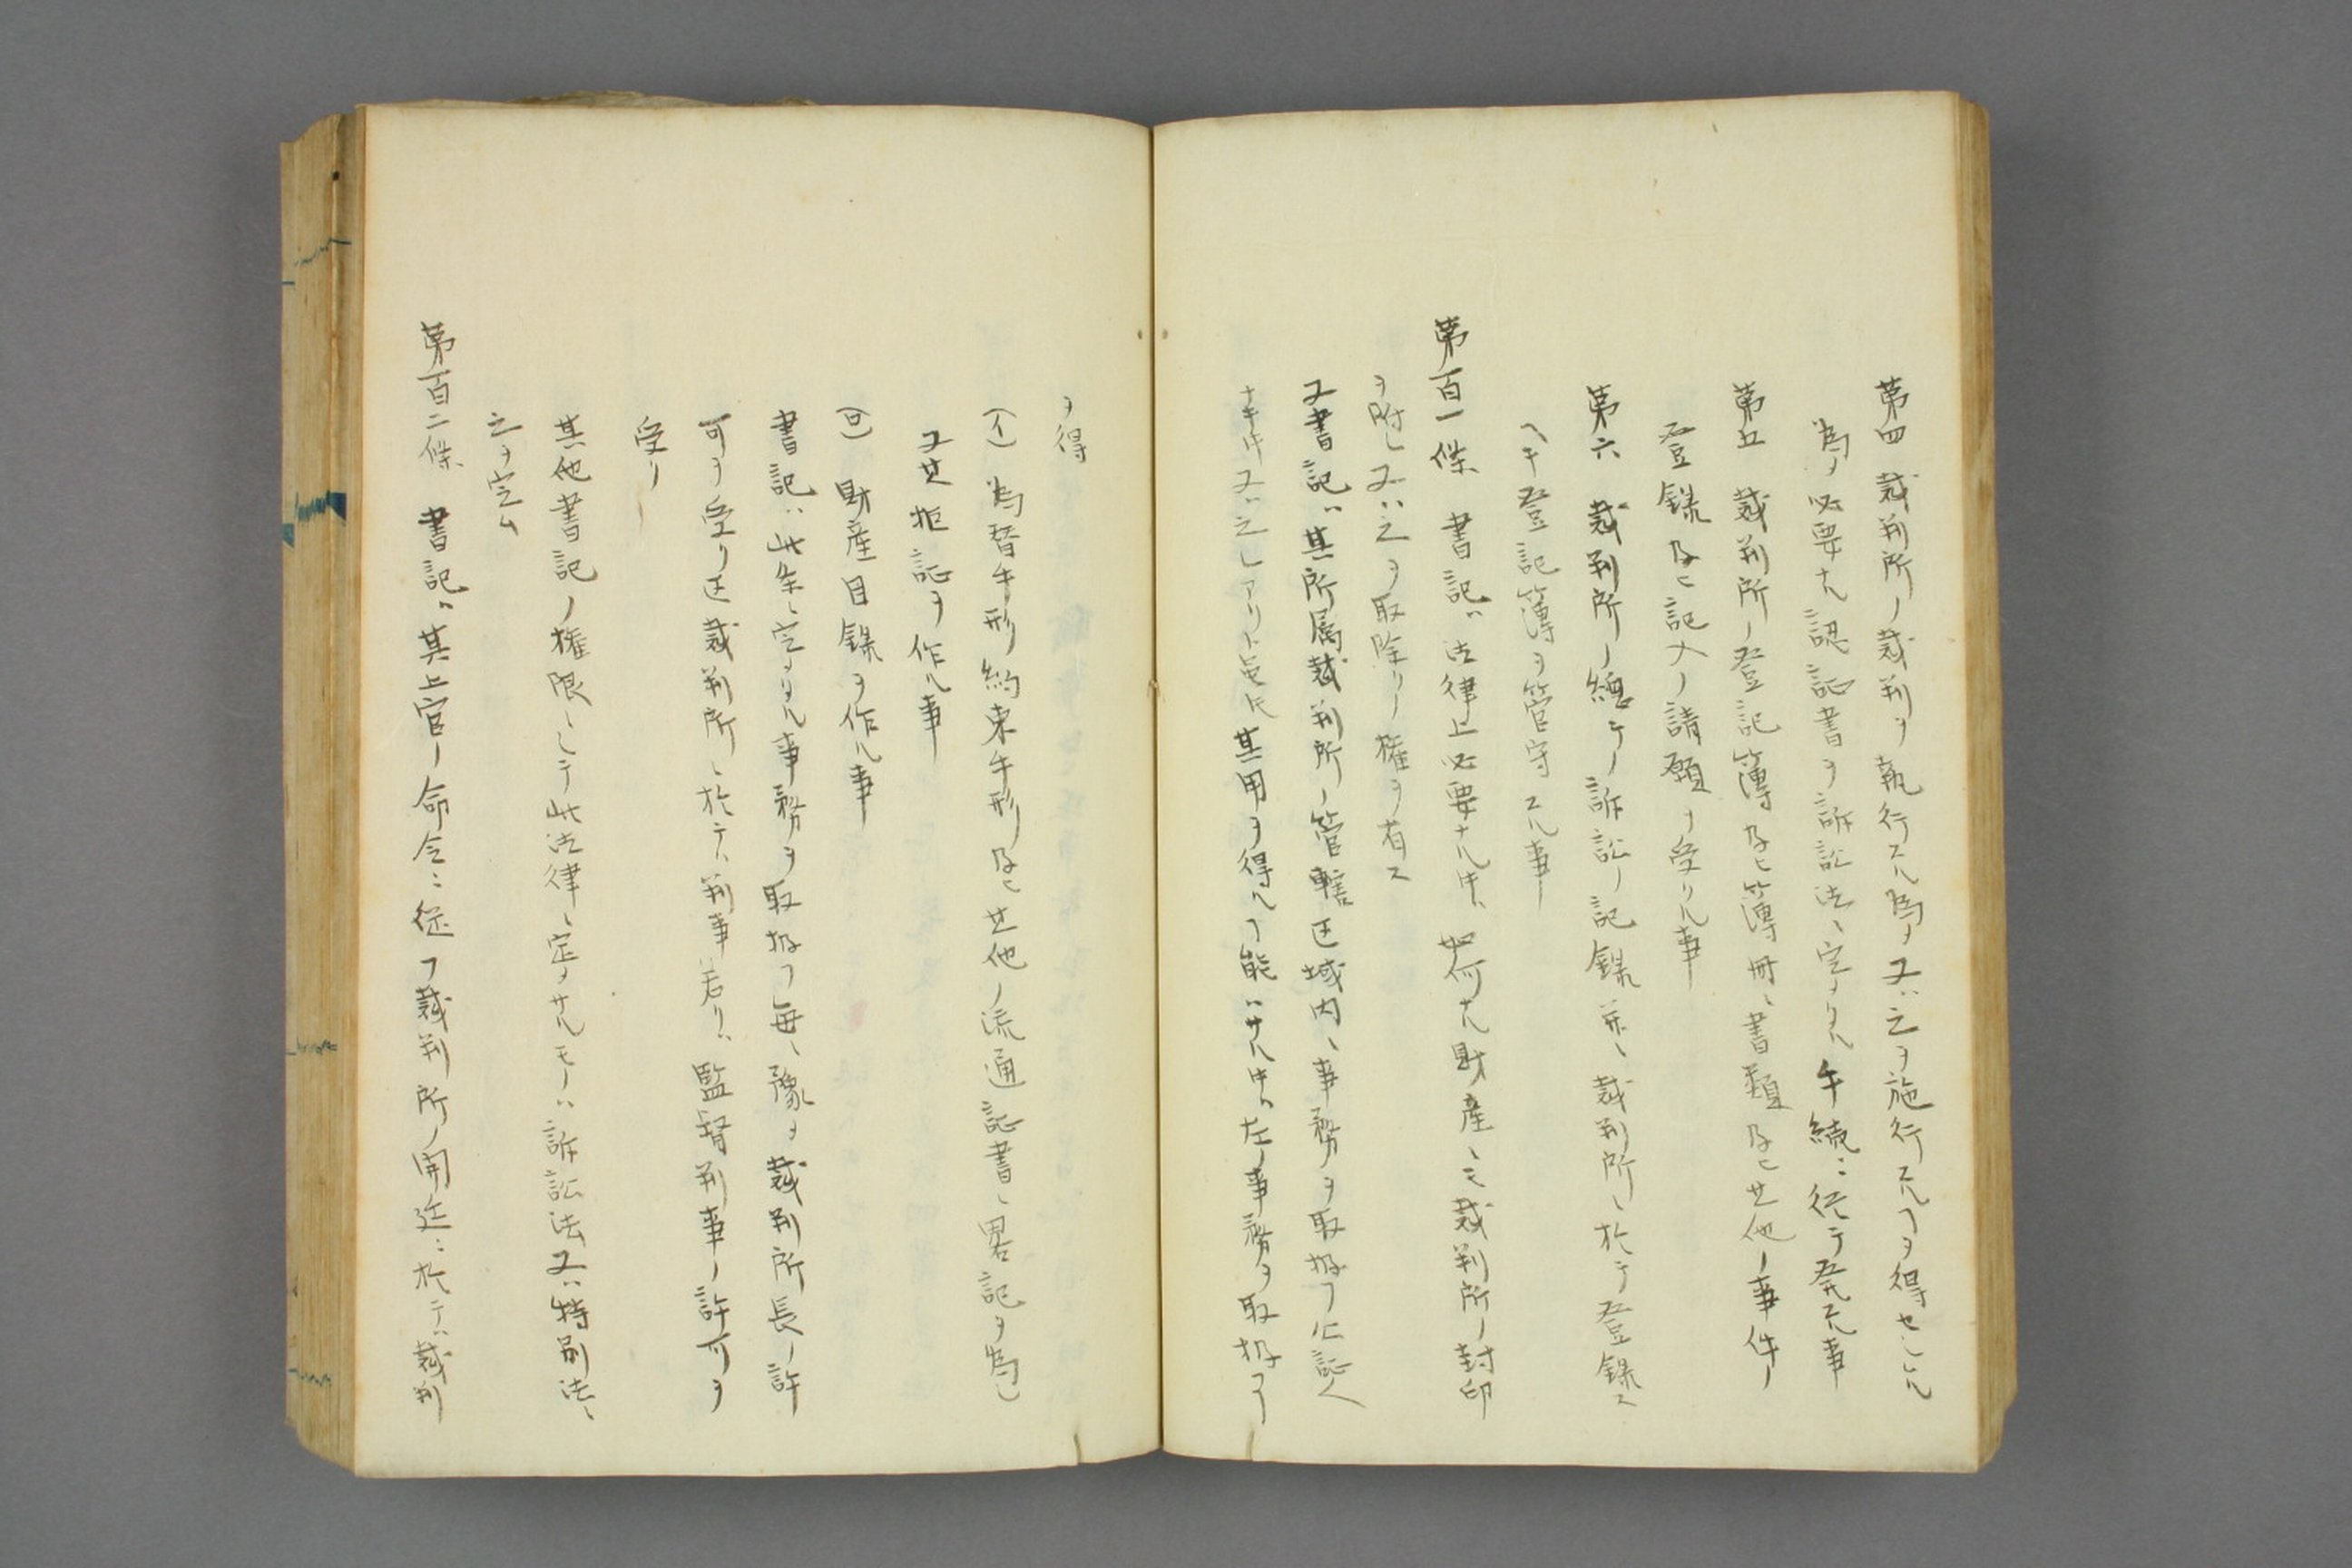 第四 裁判所ノ裁判ヲ執行スル為メ又ハ之ヲ施行スルヿヲ得セシムル
為メ必要ナル認証書ヲ訴訟法ニ定メタル手続ニ従テ発スル事
第五 裁判所ノ登記簿及ヒ簿冊ニ書類及ヒ其他ノ事件ノ
登録及ヒ記入ノ請願ヲ受クル事
第六 裁判所ノ総テノ訴訟ノ記録并ニ裁判所ニ於テ登録ス
ヘキ登記簿ヲ管守スル事
第百一條 書記ハ法律上必要ナル時ハ如何ナル財産ニモ裁判所ノ封印
ヲ附シ又ハ之ヲ取除クノ権ヲ有ス
又書記ハ其所属裁判所ノ管轄区域内ニ事務ヲ取扱フ公証人
ナキ時又ハ之レアリト雖トモ其用ヲ得ルヿ能ハサル時ハ左ノ事務ヲ取扱フヿ
ヲ得
(イ) 為替手形約束手形及ヒ其他ノ流通証書ニ畧記ヲ為シ
又其拒証ヲ作ル事
(ロ) 財産目録ヲ作ル事
書記ハ此条ニ定メタル事務ヲ取扱フ毎ニ豫メ裁判所長ノ許
可ヲ受ケ区裁判所ニ於テハ判事若クハ監督判事ノ許可ヲ
受ク
其他書記ノ権限ニシテ此法律ニ定メサルモノハ訴訟法又ハ特別法ニ
之ヲ定ム
第百二條 書記ハ其上官ノ命令ニ従フ裁判所ノ開廷ニ於テハ裁判